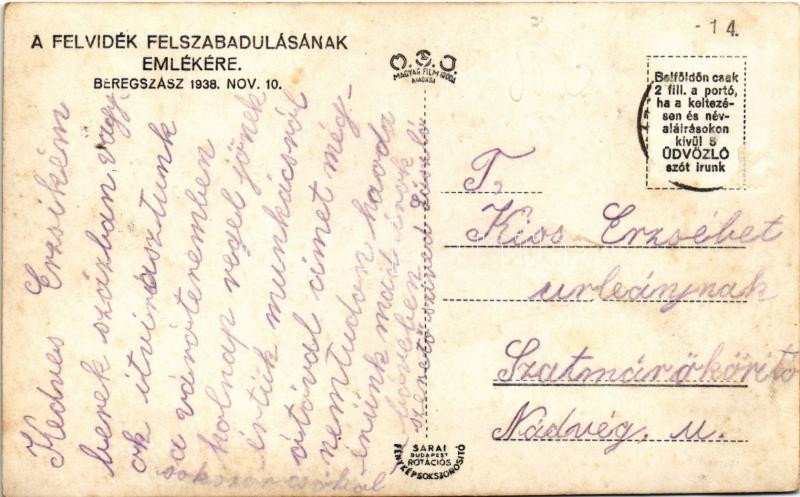 A FELVIDÉK FELSZABADULÁSÁNAK
EMLÉKÉRE.
BEREGSZÁSZ 1938. NOV. 10.
M.F.I.
MAGYAR FILM IRODA
KIADÁSA
- 1 4.
Belföldön csak
2 fill. a portó,
ha a keltezé-
sen és név-
aláirásokon
kívül 5
ÜDVÖZLŐ
szót irunk
Kedves Erzsikém
berek szászban vagy
ok itvirrásztunk
a váróteremben
holnap regel jönek
értük munkácsról
átóval címet még-
nemtudon havda
irünk mast irok
bőveben
szerető szived László
sokszor csókol
T,
Kiss Erzsébet
urleánynak
Szatmárökörito
Nádvég. u.
SÁRAI
BUDAPEST
ROTÁCIÓS
FÉNYKÉPSOKSZOROSITÓ